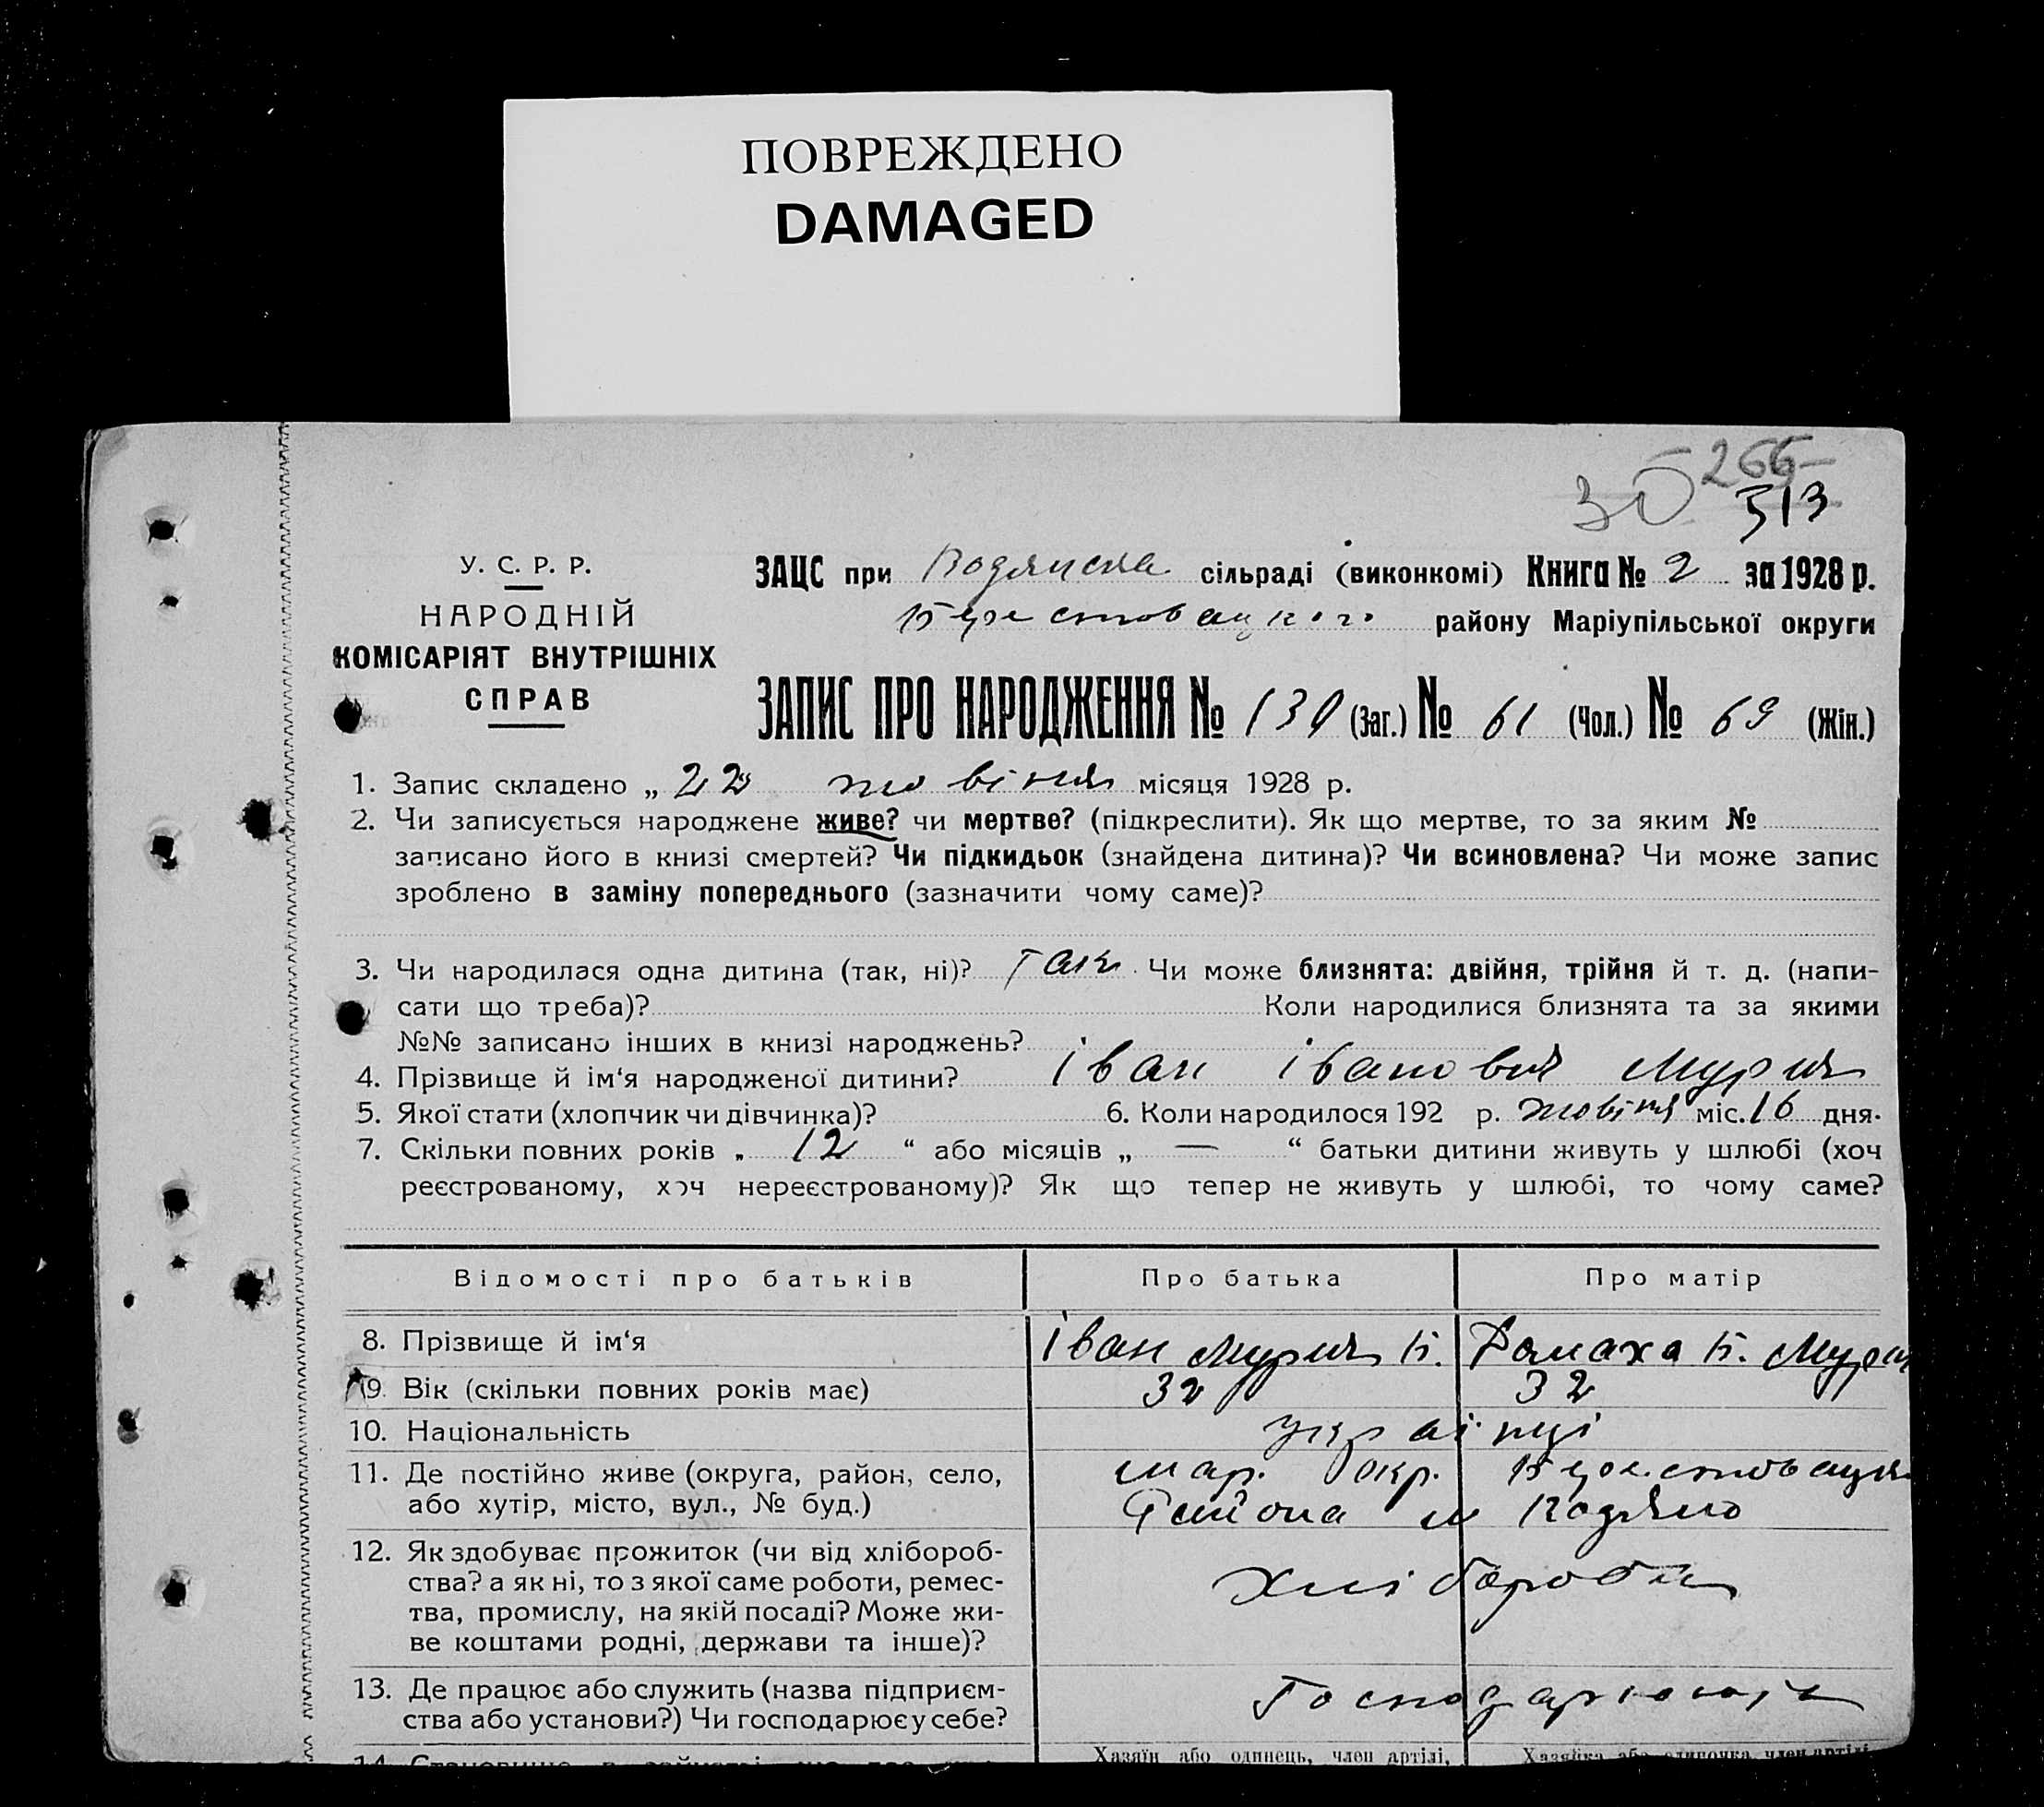 ПОВРЕЖДЕНО
DAMAGED
266
30 313
У. С. Р. Р.
НАРОДНІЙ
КОМІСАРІЯТ ВНУТРІШНІХ
СПРАВ
ЗАЦС при Водянска сільраді (виконкомі) Книга № 2 за 1928 р.
району Маріупільської округи
ЗАПИС ПРО НАРОДЖЕННЯ № 130 (Заг.) № 61 (Чол.) № 69 (Жін.)
1. Запис складено „ 22 жовтня місяця 1928 р.
2. Чи записується народжене живе? чи мертве? (підкреслити). Як що мертве, то за яким №
записано його в книзі смертей? Чи підкидьок (знайдена дитина)? Чи всиновлена? Чи може запис
зроблено в заміну попереднього (зазначити чому саме)?
3. Чи народилася одна дитина (так, ні)? Так Чи може близнята: двійня, трійня й т. д. (напи-
сати що треба)? Коли народилися близнята та за якими
№№ записано інших в книзі народжень?
4. Прізвище й ім‘я народженої дитини? Іван Іванович
5. Якої стати (хлопчик чи дівчинка)? 6. Коли народилося 192 р. жовтня міс. 16 дня.
7. Скільки повних років „ 12 “ або місяців „ — “ батьки дитини живуть у шлюбі (хоч
реєстрованому, хоч нереєстрованому)? Як що тепер не живуть у шлюбі, то чому саме?
Відомості про батьків Про батька Про матір
8. Прізвище й ім‘я Іван
9. Вік (скільки повних років має) 32 32
10. Національність українці
11. Де постійно живе (округа, район, село, мар. окр.
або хутір, місто, вул., № буд.) района
12. Як здобуває прожиток (чи від хлібороб-
ства? а як ні, то з якої саме роботи, ремес- хлібороби
тва, промислу, на якій посаді? Може жи-
ве коштами родні, держави та інше)?
13. Де працює або служить (назва підприєм- Господарюють
ства або установи?) Чи господарює у себе?
Хазяїн або одинець, член артілі, Хазяйка або одиночка, член артілі